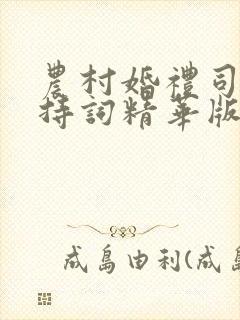 農村婚禮司
持詞精華版
成島由利(成島